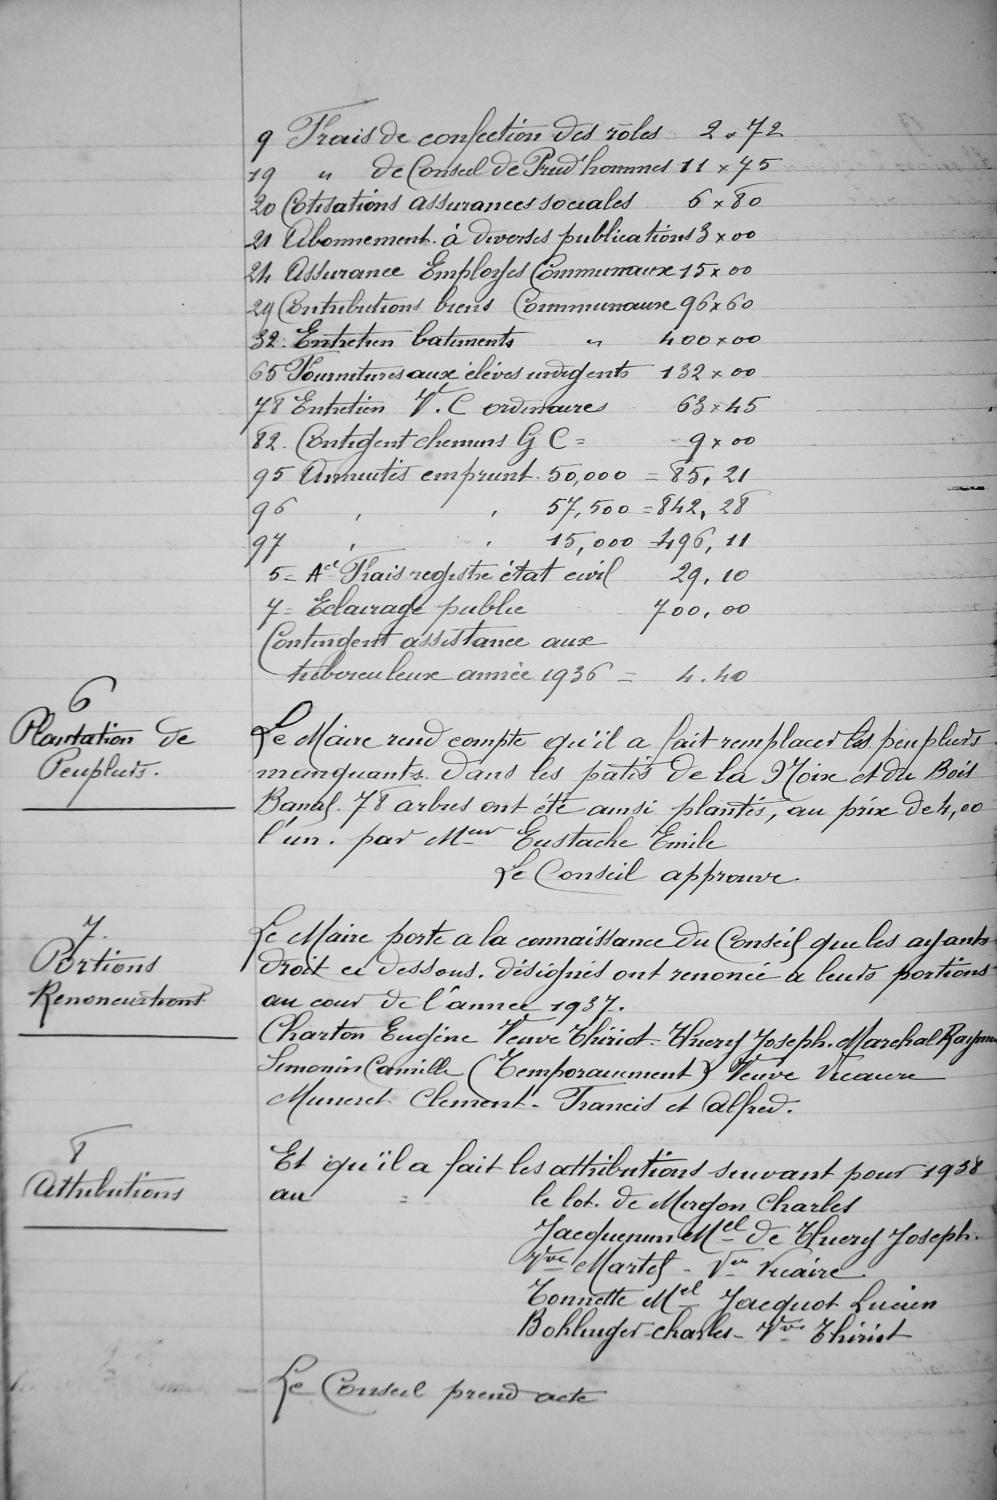 9 Frais de confection des rôles 2 x 72
19 " de Conseil de Prud'hommes 11 x 75
20 Cotisations assurances sociales 6 x 80
21 Abonnement à diverses publications 3 x 00
24 Assurance Employés Communaux 15 x 00
29 Contributions biens Communaux 96 x 60
32. Entretien batiments " 400 x 00
65 Fournitures aux élèves indigents 132 x 00
78 Entretien V. C ordinaires 63 x 45
82. Contigent chemins G C = 9 x 00
95 Annuités emprunt. 50,000 = 85, 21
96 , , 57,500 = 842, 28
97 , , 15,000 = 496, 11
5 = Ael Frais registre état civil 29, 10
7 = Eclairage public 700, 00
Contingent assistance aux
tuberculeux année 1936 = 4.40
6
Plantation de
Peupliers.
Le Maire rend compte qu'il a fait remplacer les peupliers
manquants. dans les patis de la Noix et du Bois
Banal. 78 arbres ont été ainsi plantés, au prix de 4,00
l'un. par Meur Eustache Emile
Le Conseil approuve.
7.
Portions
Renonciations
Le Maire porte a la connaissance du Conseil que les ayants
droit ci dessous. désignés ont renoncé a leurs portions
au cour de l'année 1937.
Charton Eugène Veuve Thiriot. Thiery Joseph. Marchal
Simonin Camille (Temporairement) Veuve Vicaire
Muneret Clement - Francis et Alfred.
8
Attributions
Et qu'il a fait les attributions suivant pour 1938
au = le lot. de Mirgon Charles
Jacquemin Mel de Thiery Joseph.
Vve Martel - Vve Vicaire
Tonnette Mel Jacquot Lucien
Bohlinger Charles - Vve Thiriot
Le Conseil prend acte